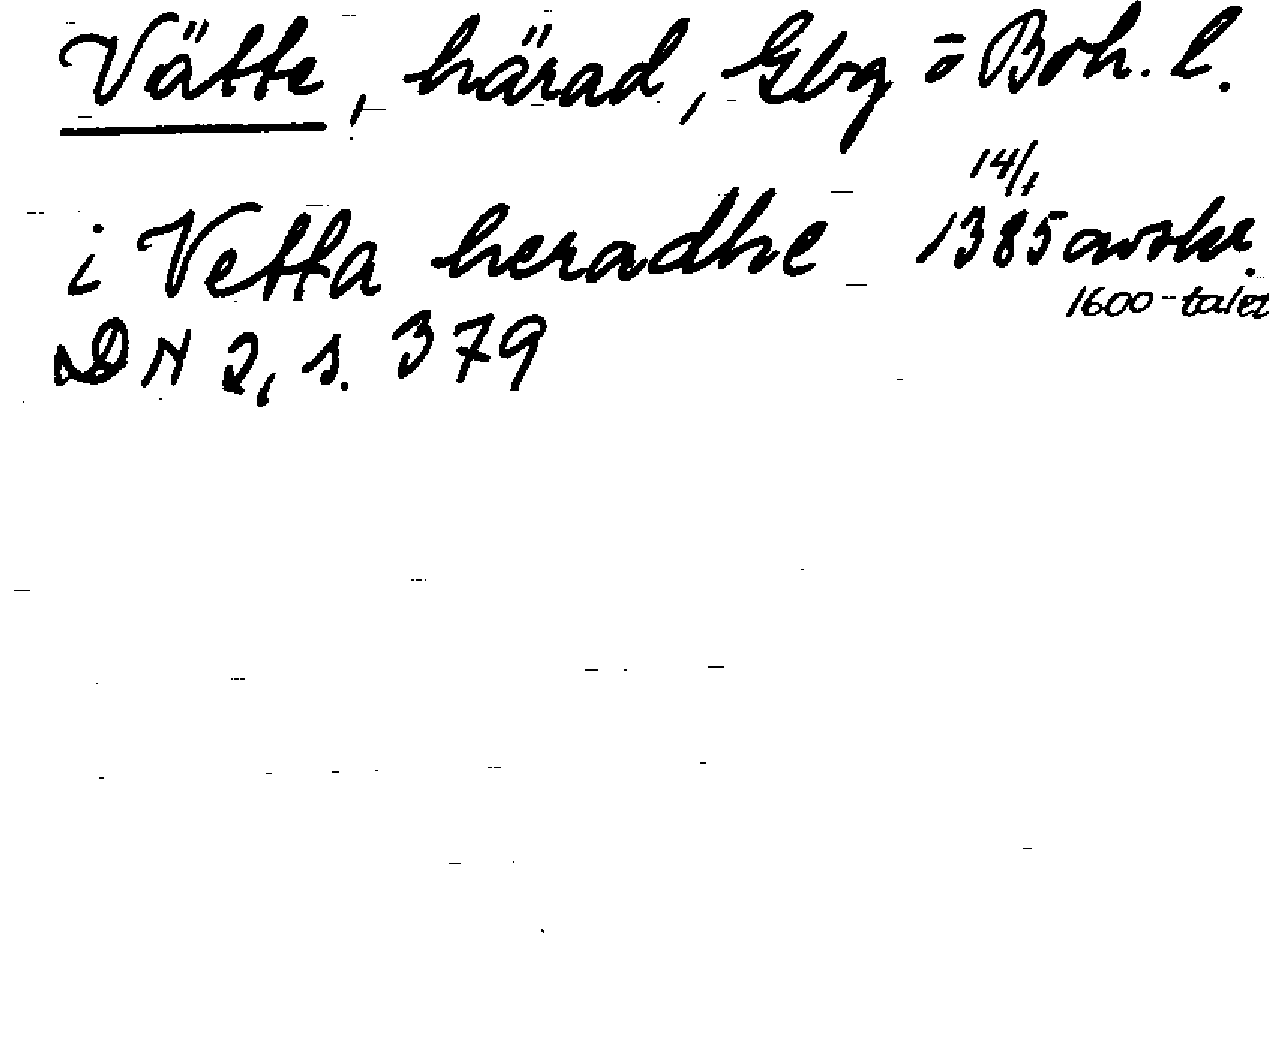 Vätte, härad, Gbg o Boh. l.
i Vetta heradhe 14/1 1385 avskr. 1600-talet
DN 2, s. 379